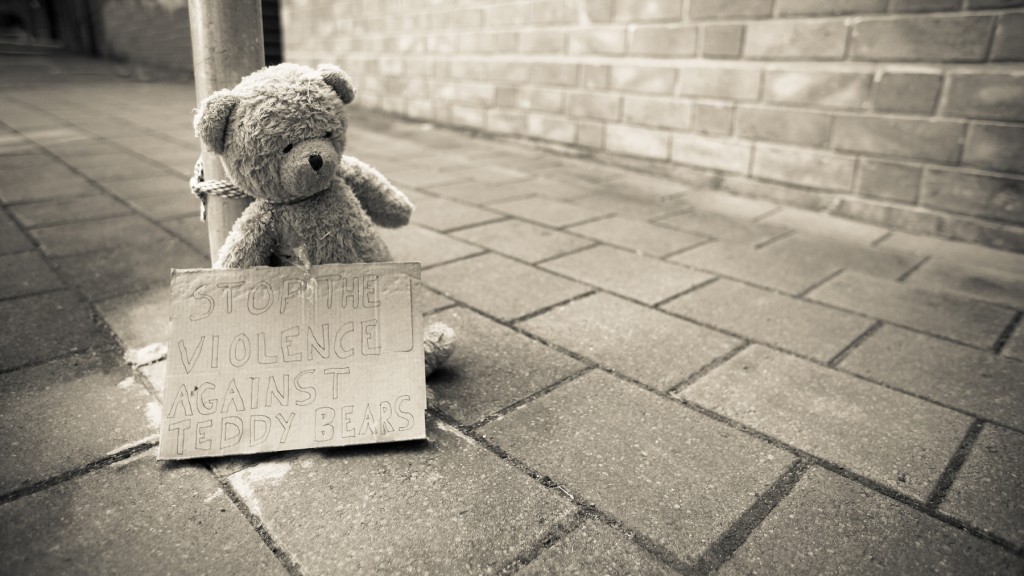 STOP THE
VIOLENCE
AGAINST
TEDDY BEARS